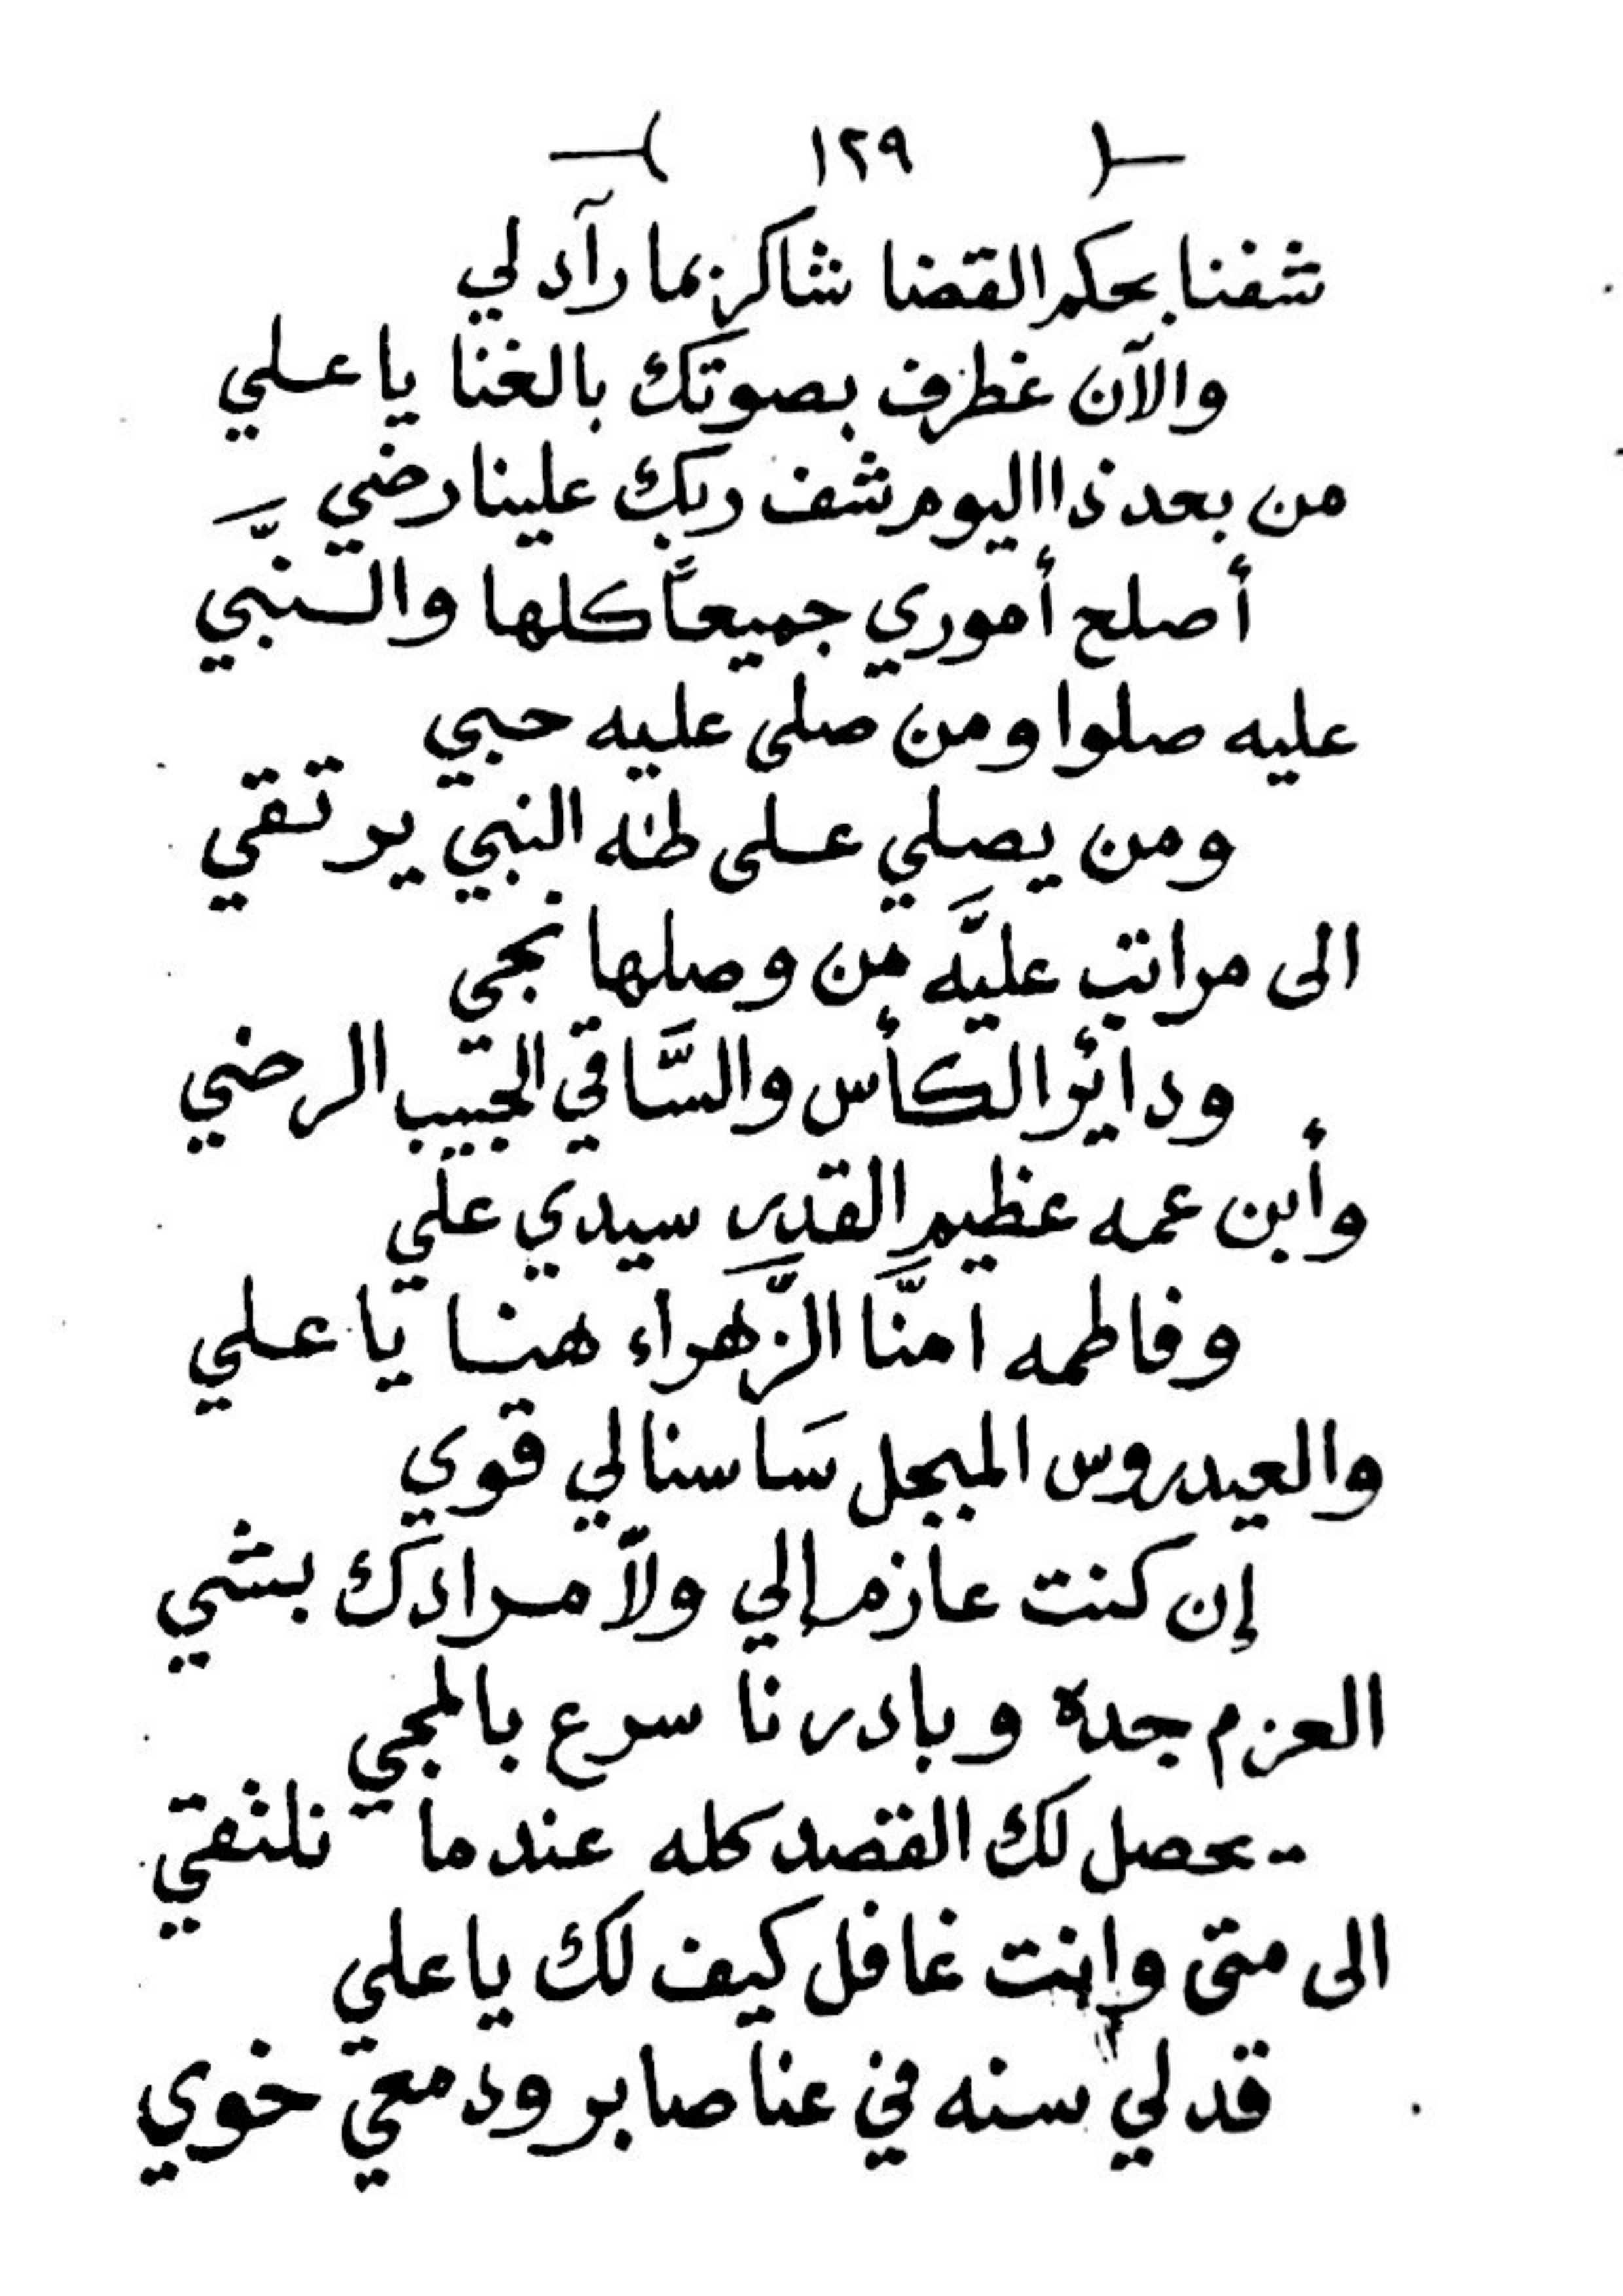 ( ١٢٩ )
شفنا بحكم القضا شاكر بما رآد لي
والآن غطرف بصوتك بالغنا يا علي
من بعد ذا اليوم شف ربك علينا رضي
أصلح أموري جميعاً كلها والنَّبّي
عليه صلوا ومن صلى عليه حبي
ومن يصلي على طٰه النبي يرتقي
الى مراتب عليَّه من وصلها نجي
ودائر الكأس والسَّاقي الحبيب الرضي
وأبن عمه عظيم القدر سيدي علي
وفاطمه امنَّا الزَّهراء هنا يا علي
والعيدروس المبجل سَاسنا لي قوي
إن كنت عازم إلي ولاّ مرادك بشي
العزم جده وبادرنا سرع بالمجي
يحصل لك القصد كله عندما نلتقي
الى متى وانت غافل كيف لك يا علي
قد لي سنه في عنا صابر ودمعي خوي